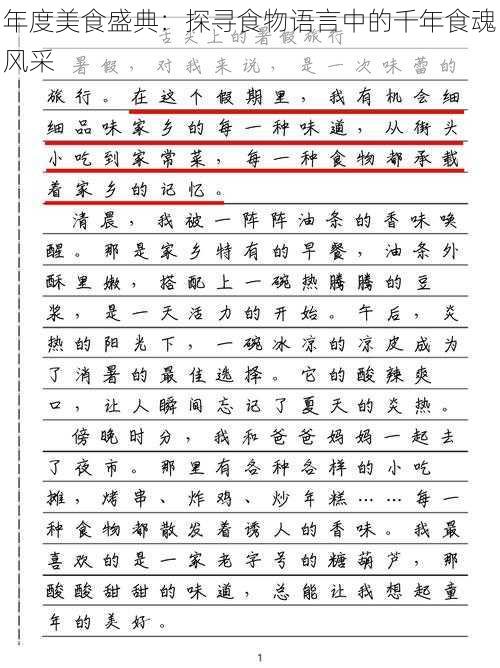 年度美食盛典：探寻食物语言中的千年食魂风采
舌尖上的暑假旅行
暑假，对我来说，是一次味蕾的
旅行。在这个假期里，我有机会细
细品味家乡的每一种味道，从街头
小吃到家常菜，每一种食物都承载
着家乡的记忆。
清晨，我被一阵阵油条的香味唤
醒。那是家乡特有的早餐，油条外
酥里嫩，搭配上一碗热腾腾的豆
浆，是一天活力的开始。午后，炎
热的阳光下，一碗冰凉的凉皮成为
了消暑的最佳选择。它的酸辣爽
口，让人瞬间忘记了夏天的炎热。
傍晚时分，我和爸爸妈妈一起去
了夜市。那里有各种各样的小吃
摊，烤串、炸鸡、炒年糕……每一
种食物都散发着诱人的香味。我最
喜欢的是一家老字号的糖葫芦，那
酸酸甜甜的味道，总能让我想起童
年的美好。
1